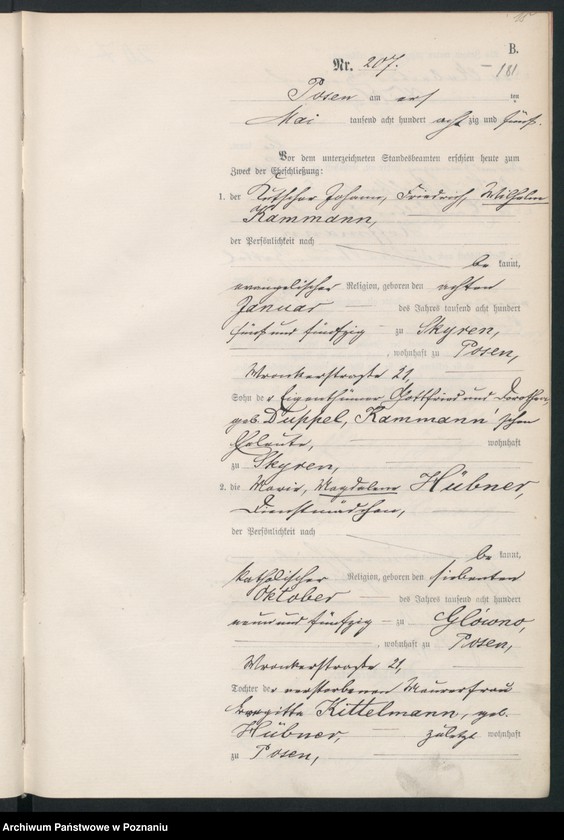 B.
Nr. 207.
181
Posen am ersten
Mai tausend acht hundert achtzig und fünf.
Vor dem unterzeichneten Standesbeamten erschien heute zum
Zweck der Eheschließung:
1. der Kutscher Johann, Friedrich, Wilhelm
Kammann,
der Persönlichkeit nach
bekannt,
evangelischer Religion, geboren den achten
Januar des Jahres tausend acht hundert
fünf und fünfzig zu Skyren,
, wohnhaft zu Posen,
Wronkerstraße 21,
Sohn der Eigenthümer Gottfried und Dorothea,
geb. Düppel, Kammann'schen
Eheleute, wohnhaft
zu Skyren,
2. die Marie, Magdalena Hübner,
Dienstmädchen,
der Persönlichkeit nach
bekannt,
katholischer Religion, geboren den siebenten
Oktober des Jahres tausend acht hundert
neun und fünfzig zu Glówno,
, wohnhaft zu Posen,
Wronkerstraße 21,
Tochter der verstorbenen Maurerfrau
Kittelmann, geb.
Hübner, zuletzt wohnhaft
zu Posen,
Archiwum Państwowe w Poznaniu